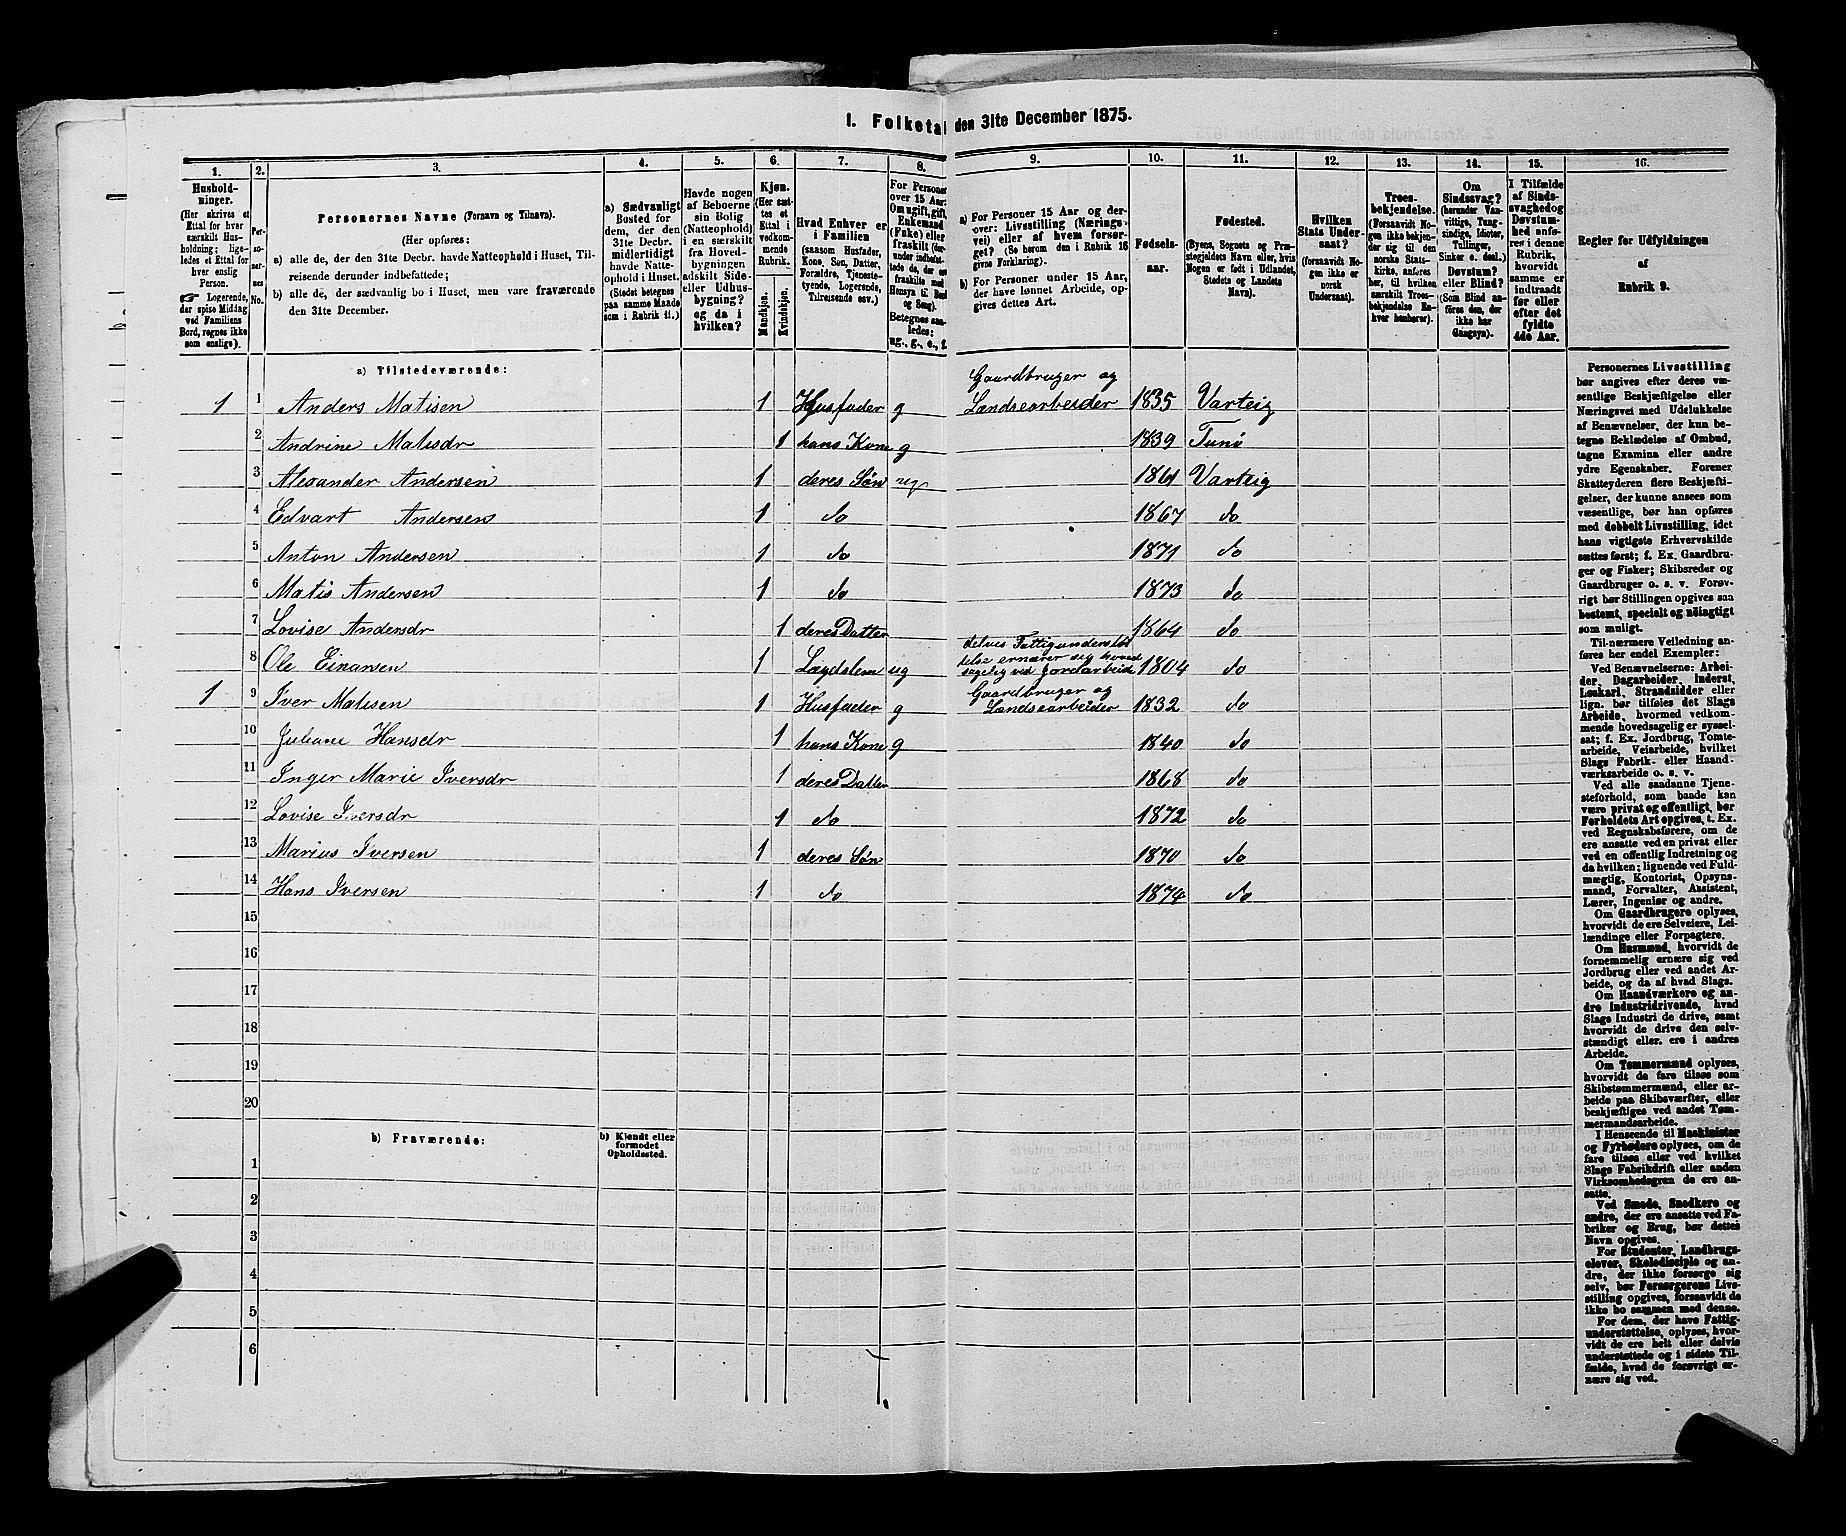 1. Folketa den 31te December 1875.
1. 2. 3. 4. 5. 6. 7. 8. 9. 10. 11. 12. 13. 14. 15. 16.
Hushold-
ninger.
(Her skrives et
Ettal for hver
særskilt Hus-
holdning; lige-
ledes et Ettal for
hver enslig
Person.
☞ Logerende,
der spise Middag
ved Familiens
Bord, regnes ikke
som enslige).
Per-
so-
ner-
nes
No.
Personernes Navne (Fornavn og Tilnavn).
(Her opføres:
a) alle de, der den 31te Decbr. havde Natteophold i Huset, Til-
reisende derunder indbefattede;
b) alle de, der sædvanlig bo i Huset, men vare fraværende
den 31te December.
a) Sædvanligt
Bosted for
dem, der den
31te Decbr.
midlertidigt
havde Natte-
ophold i Huset.
(Stedet betegnes
paa samme Maade
som i Rubrik 11.)
Havde nogen
af Beboerne
sin Bolig
(Natteophold)
i en særskilt
fra Hoved-
bygningen
adskilt Side-
eller Udhus-
bygning?
og da i
hvilken?
Kjøn.
(Her sæt-
tes et
Ettal i
vedkom-
mende
Rubrik.
Mandkjøn.
Kvindekjøn.
Hvad Enhver er
i Familien
(saasom Husfader,
Kone, Søn, Datter,
Forældre, Tjeneste-
tyende, Logerende,
Tilreisende osv.)
For Personer
over 15 Aar:
Om ugift, gift,
Enkemand
(Enke) eller
fraskilt (der-
under indbefat-
tede de, der ere
fraskilte med
Hensyn til Bord
og Seng).
Betegnes saa-
ledes:
ug., g., e., f.
a) For Personer 15 Aar og der-
over: Livsstilling (Nærings-
vei) eller af hvem forsør-
get? (Se herom den i Rubrik 16
givne Forklaring).
b) For Personer under 15 Aar,
der have lønnet Arbeide, op-
gives dettes Art.
Fødsels-
aar.
Fødested.
(Byens, Sognets og Præ-
stegjeldets Navn eller, hvis
Nogen er født i Udlandet,
Stedets og Landets
Navn).
Hvilken
Stats Under-
saat?
(forsaavidt No-
gen ikke er
norsk
Undersaat).
Troes-
bekjendelse.
(Forsaavidt No-
gen ikke bekjen-
der sig til den
norske Stats-
kirke, anføres
her, til hvilken
særskilt Troes-
bekjendelse En-
hver henhører).
Om
Sindssvag?
(herunder Van-
vittige, Tung-
sindige, Idioter,
Tullinger,
Sinker o. desl.).
Døvstum?
eller Blind?
(Som Blind an-
føres den, der
ikke har
Gangsyn).
I Tilfælde
af Sinds-
svaghed og
Døvstum-
hed anfø-
res i denne
Rubrik,
hvorvidt
samme er
indtraadt
før eller
efter det
fyldte
4de Aar.
Regler for Udfyldningen
af
Rubrik 9.
a) Tilstedeværende:
1 1 Anders Matisen 1 Husfader g Gaardbruger og
Landsearbeider 1835 Varteig
2 Andrine Matisdr 1 hans Kone g 1839 Tunø
3 Alexander Andersen 1 deres Søn ug 1861 Varteig
4 Edvart Andersen 1 do 1867 do
5 Anton Andersen 1 do 1871 do
6 Matis Andersen 1 do 1873 do
7 Lovise Andersdr 1 deres Datter 1864 do
8 Ole Einarsen 1 Lægdslem ug delvis Fattigunderstøt
telse ernærer sig hoved
sagelig ved Jordarbeide 1804 do
1 9 Iver Matisen 1 Husfader g Gaardbruger og
Landsearbeider 1832 do
10 Juliane Hansdr 1 hans Kone g 1840 do
11 Inger Marie Iversdr 1 deres Datter 1868 do
12 Lovise Iversdr 1 do 1872 do
13 Marius Iversen 1 deres Søn 1870 do
14 Hans Iversen 1 do 1874 do
15
16
17
18
19
20
b) Fraværende:
b) Kjendt eller
formodet
Opholdssted.
1
2
3
4
5
6
Personernes Livsstilling
bør angives efter deres væ-
sentlige Beskjæftigelse eller
Næringsvei med Udelukkelse
af Benævnelser, der kun be-
tegne Beklædelse af Ombud,
tagne Examina eller andre
ydre Egenskaber. Forener
Skatteyderen flere Beskjæfti-
gelser, der kunne ansees som
væsentlige, bør han opføres
med dobbelt Livsstilling, idet
hans vigtigste Erhvervskilde
sættes først; f. Ex. Gaardbru-
ger og Fisker; Skibsreder og
Gaardbruger o. s. v. Forøv-
rigt bør Stillingen opgives saa
bestemt, specielt og nöiagtigt
som muligt.
Til nærmere Veiledning an-
føres her endel Exempler:
Ved Benævnelserne: Arbei-
der, Dagarbeider, Inderst,
Løskarl, Strandsidder eller
lign. bør tilføies det Slags
Arbeide, hvormed vedkom-
mende hovedsagelig er syssel-
sat; f. Ex. Jordbrug, Tomte-
arbeide, Veiarbeide, hvilket
Slags Fabrik- eller Haand-
værksarbeide o. s. v.
Ved alle saadanne Tjene-
steforhold, som baade kan
være privat og offentligt, bør
Forholdets Art opgives, t. Ex.
ved Regnskabsførere, om de
ere ansatte ved en privat eller
ved en offentlig Indretning og
da hvilken; lignende ved Fuld-
mægtig, Kontorist, Opsyns-
mand, Forvalter, Assistent,
Lærer, Ingeniør og andre.
Om Gaardbrugere oplyses,
hvorvidt de ere Selveiere, Lei-
lændinge eller Forpagtere.
Om Husmænd, hvorvidt de
fornemmelig ernære sig ved
Jordbrug eller ved andet Ar-
beide, og da af hvad Slags.
Om Haandværkere og an-
dre Industridrivende, hvad
Slags Industri de drive, samt
hvorvidt de drive den selv-
stændigt eller ere i andres
Arbeide.
Om Tømmermænd oplyses,
hvorvidt de fare tilsøs som
Skibstømmermænd, eller ar-
beide paa Skibsværfter, eller
beskjæftiges ved andet Tøm-
mermandsarbeide.
I Henseende til Maskinister
og Fyrbødere oplyses, om de
fare tilsøs eller ved hvilket
Slags Fabrikdrift eller anden
Virksomhedsgren de ere an-
satte.
Ved Smede, Snedkere og
andre, der ere ansatte ved Fa-
briker og Brug, bør dettes
Navn opgives.
For Studenter, Landbrugs-
elever, Skoledisciple og an-
dre, der ikke forsørge sig
selv, bør Forsørgerens Livs-
stilling opgives, forsaavidt de
ikke bo sammen med denne.
For dem, der have Fattig-
understøttelse, oplyses, hvor-
vidt de ere helt eller delvis
understøttede og i sidste Til-
fælde, hvad de forøvrigt er-
nære sig ved.